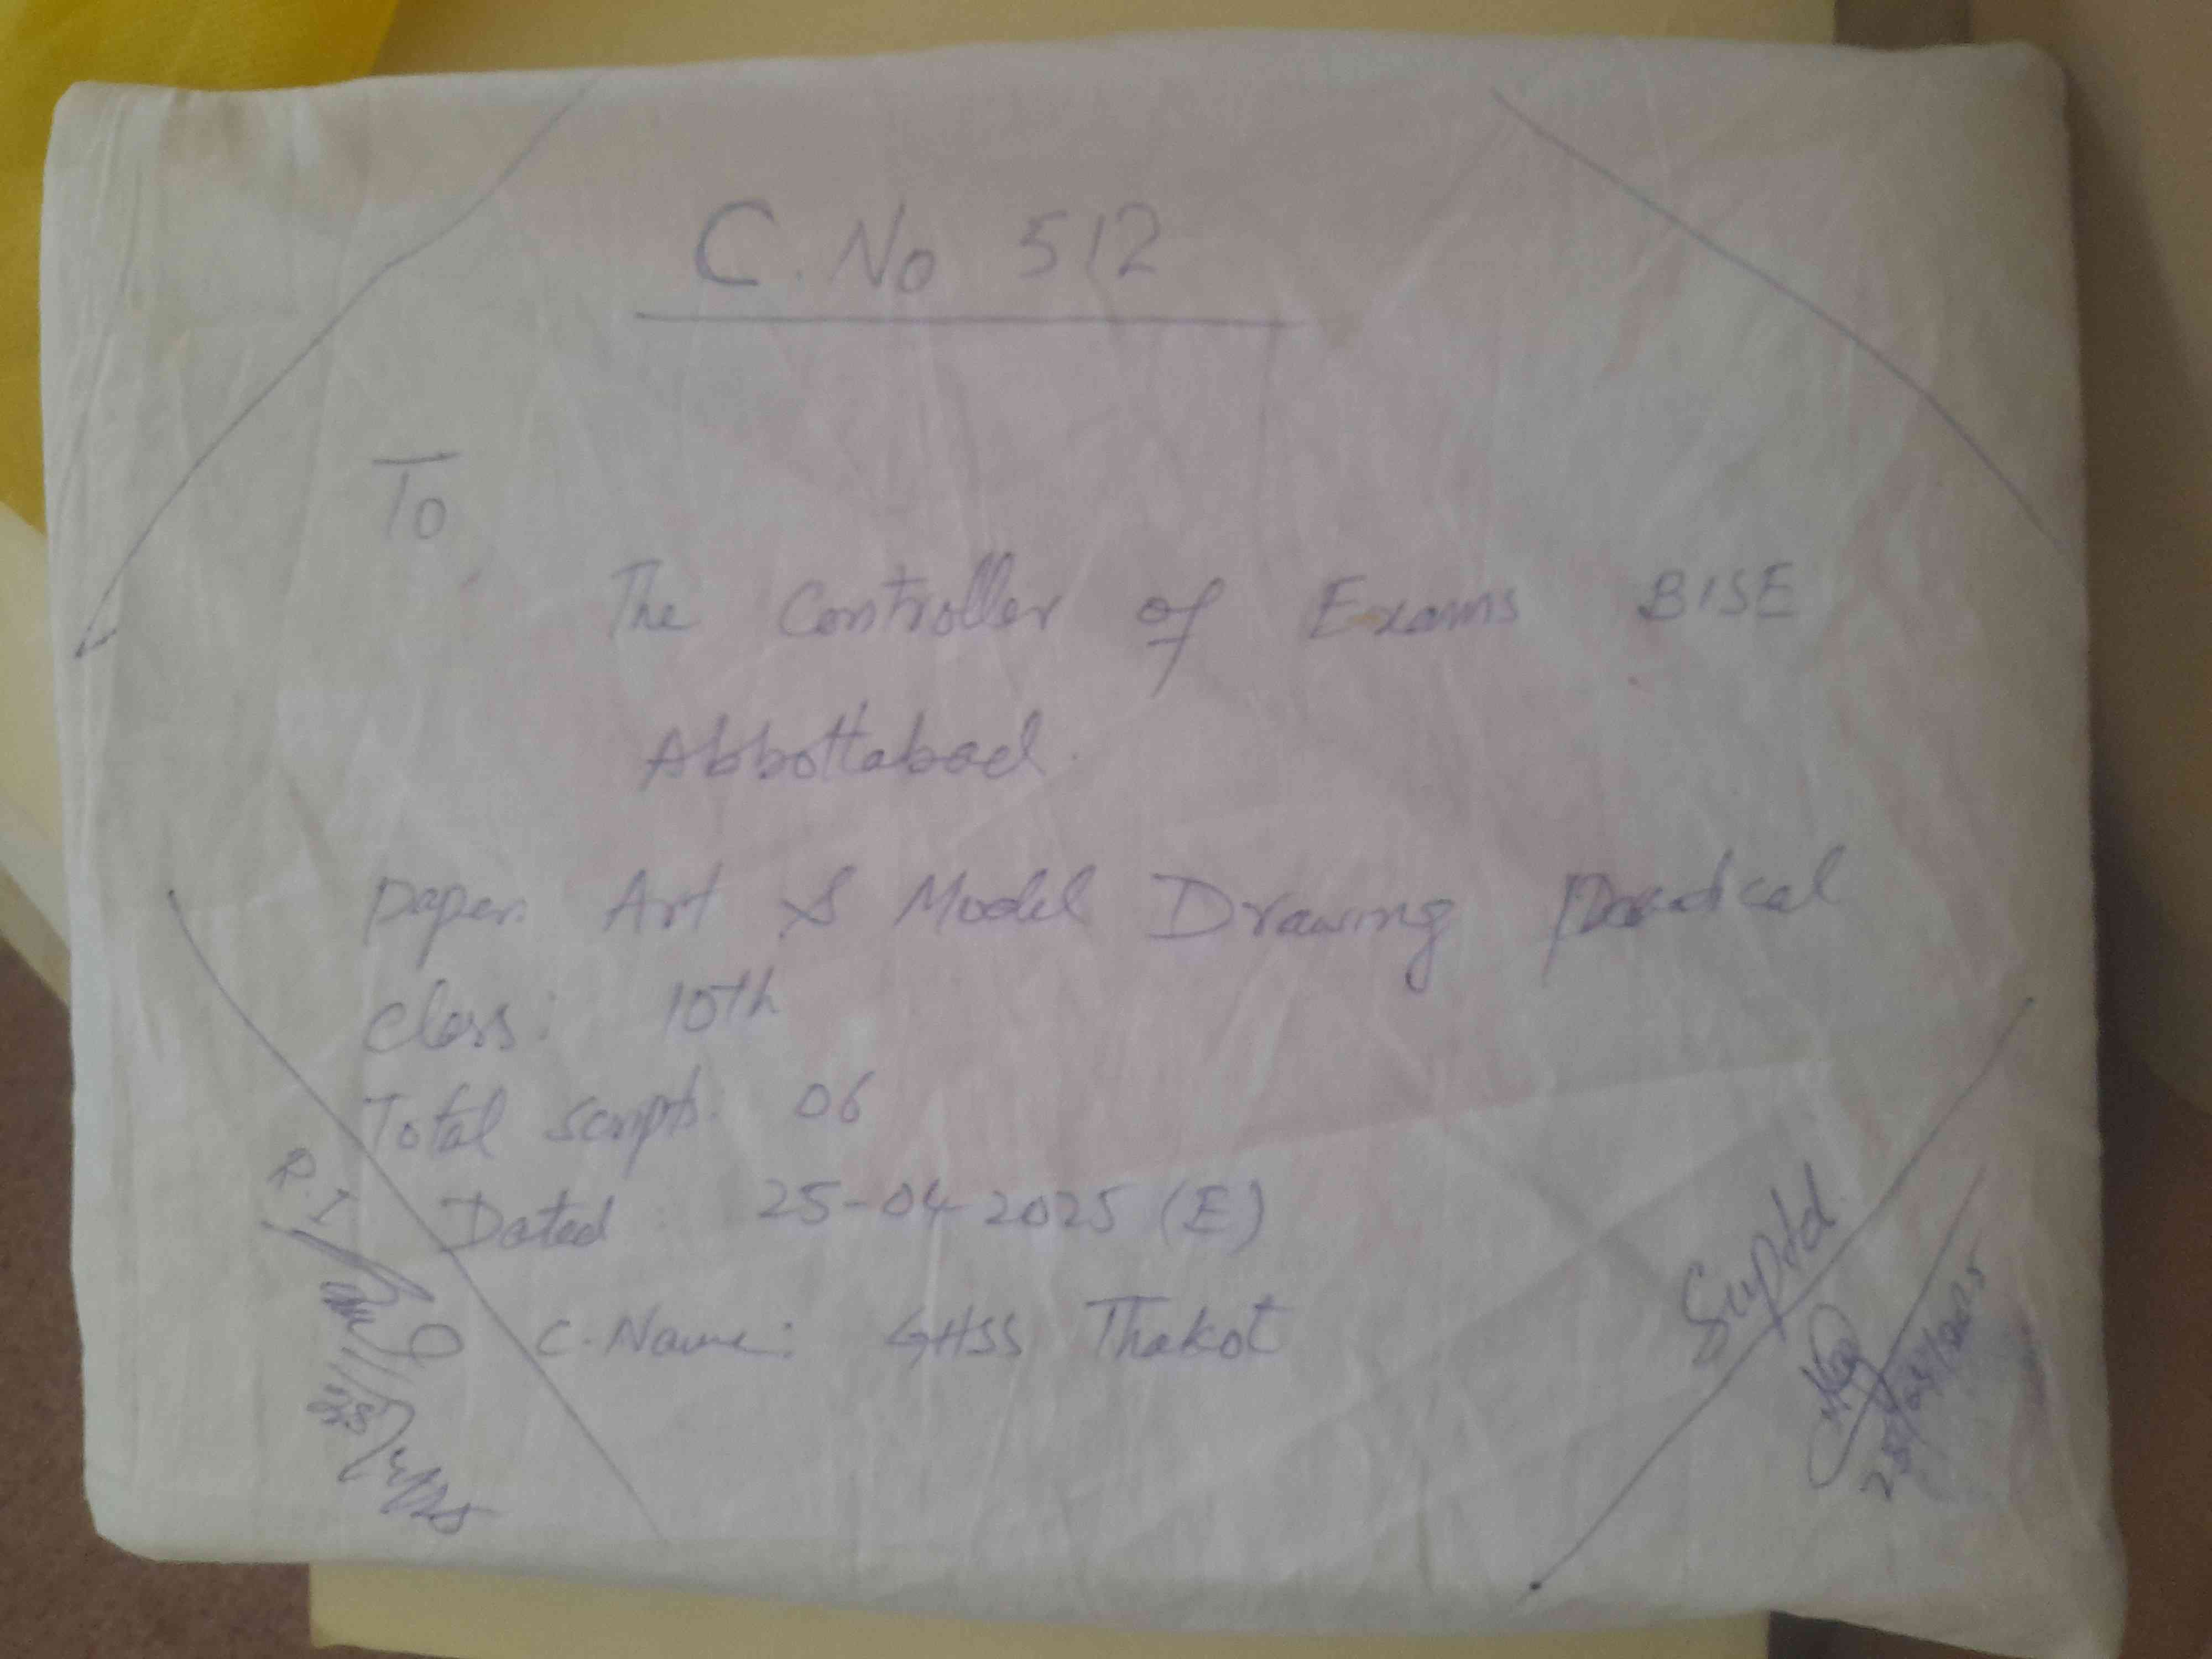 C. No 512
To
The Controller of Exams BISE
Abbottabad.
paper: Art & Model Drawing practical
class: 10th
Total scripts. 06
Dated : 25-04-2025 (E)
C. Name: GHSS Thakot
R.I
Suptd.
25/04/2025